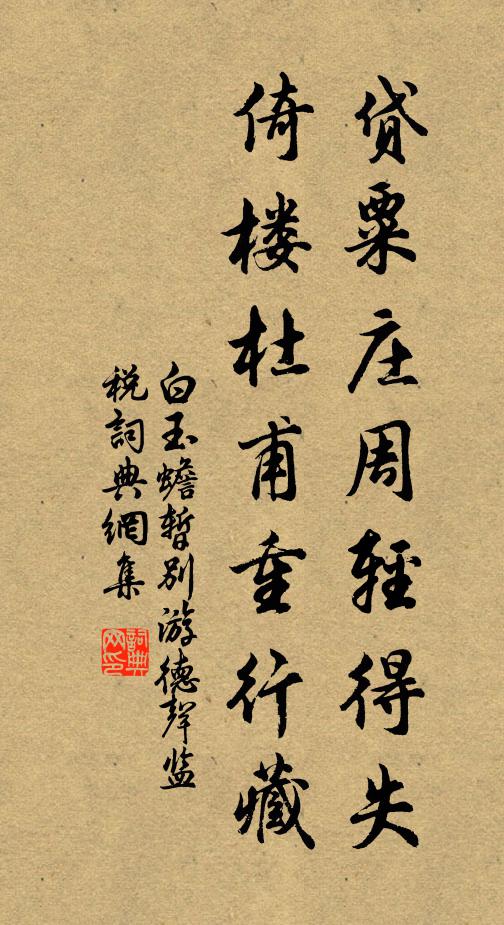 贷粟庄周轻得失
倚楼杜甫重行藏
白玉蟾暂别游德声监
税词典网集
词典
网印